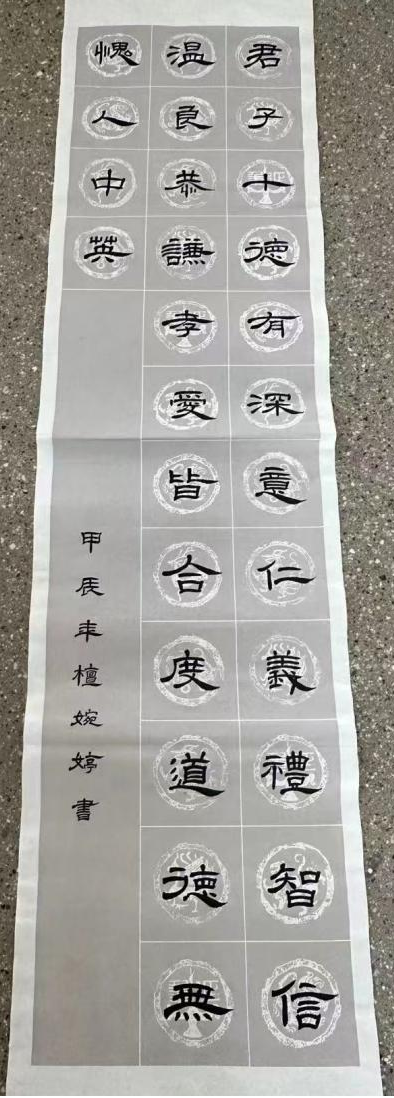 君子十德有深意仁義禮智信
温良恭謙孝愛皆合度道德無
愧人中英
甲辰年檀婉婷書